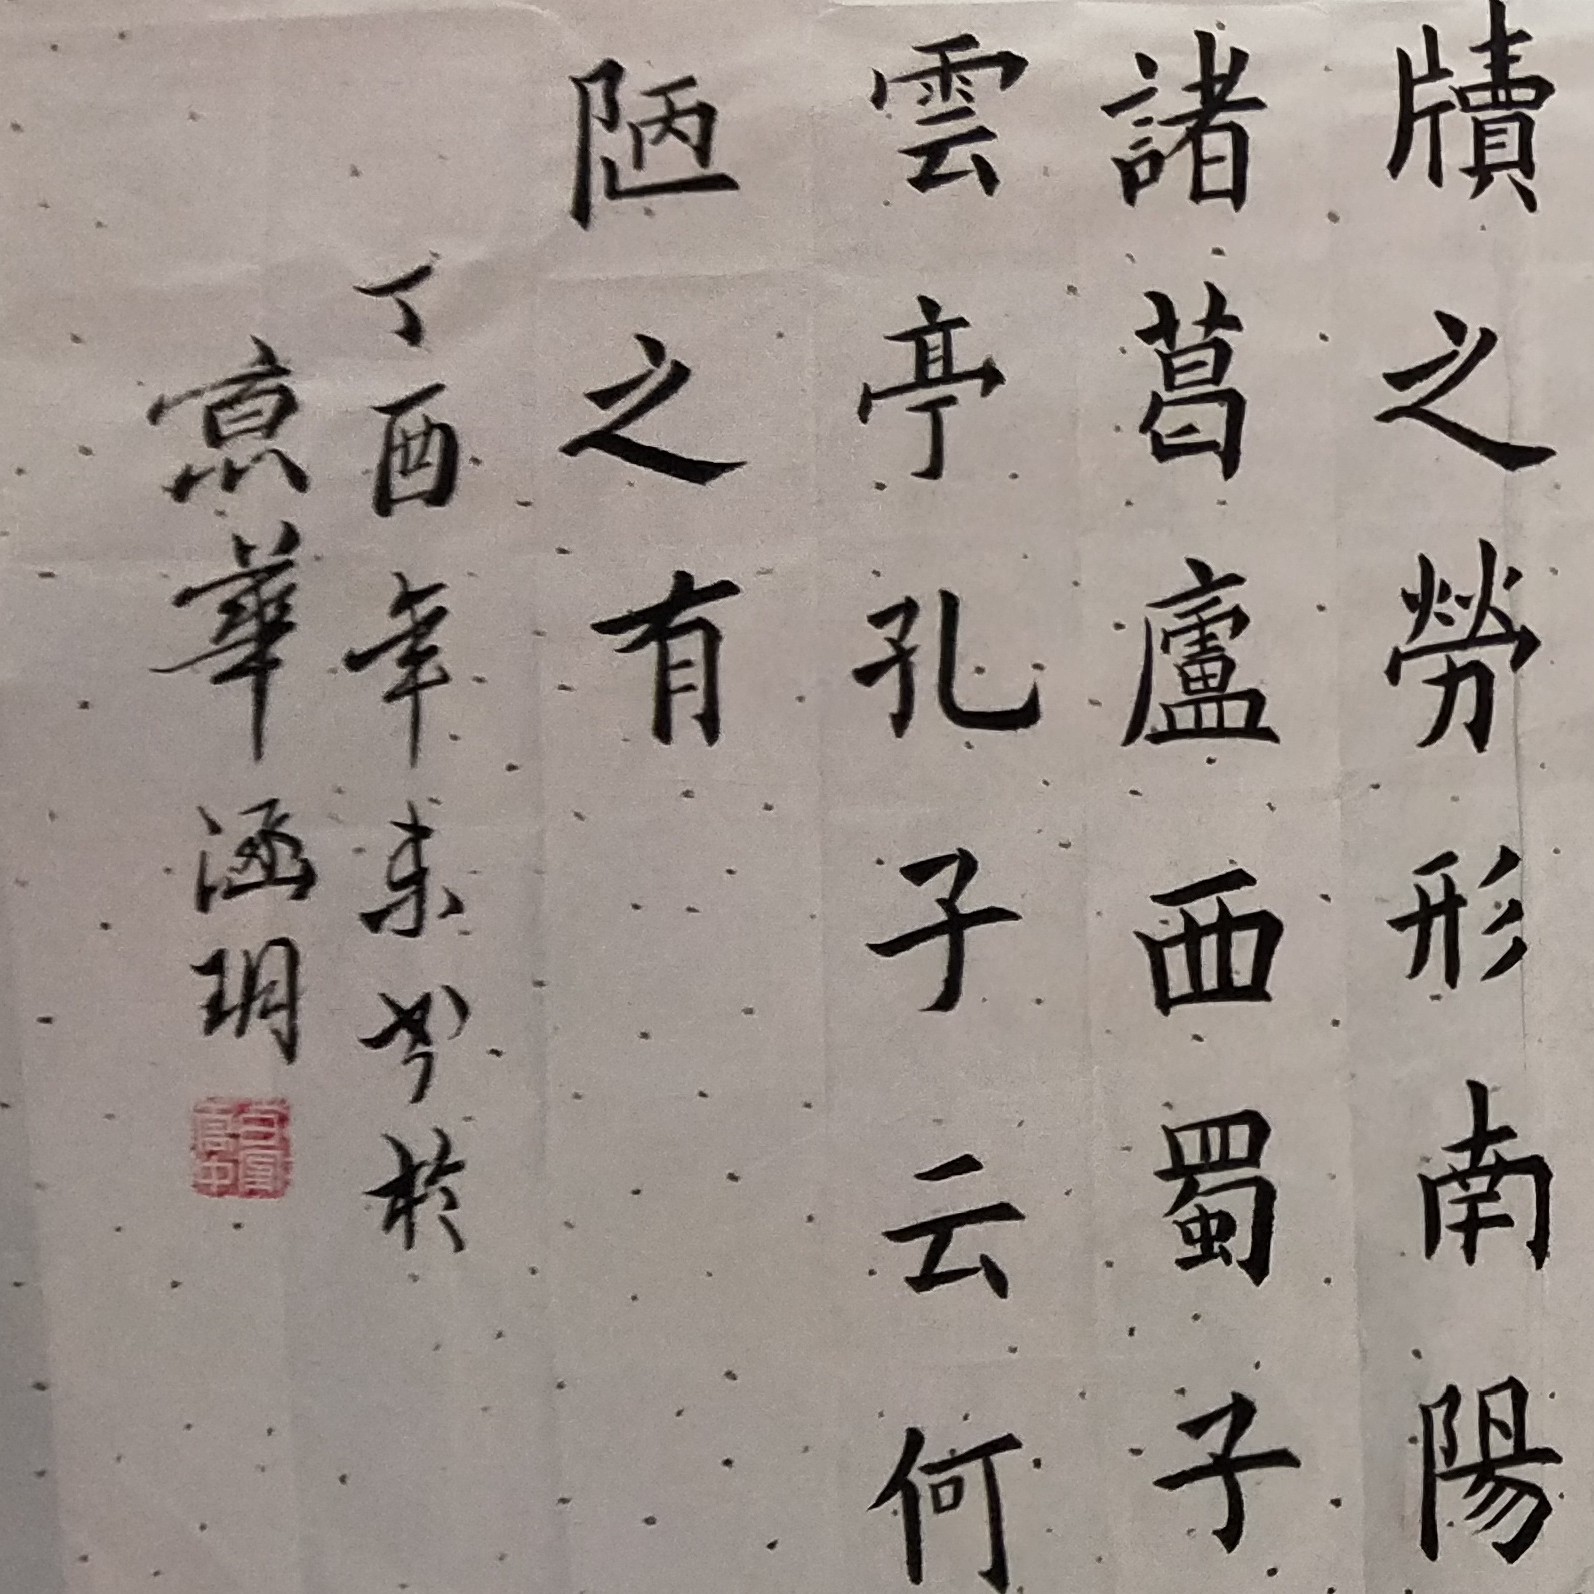 牘之勞形南陽
諸葛廬西蜀子
雲亭孔子云何
陋之有
丁酉年末書於
京華涵玥